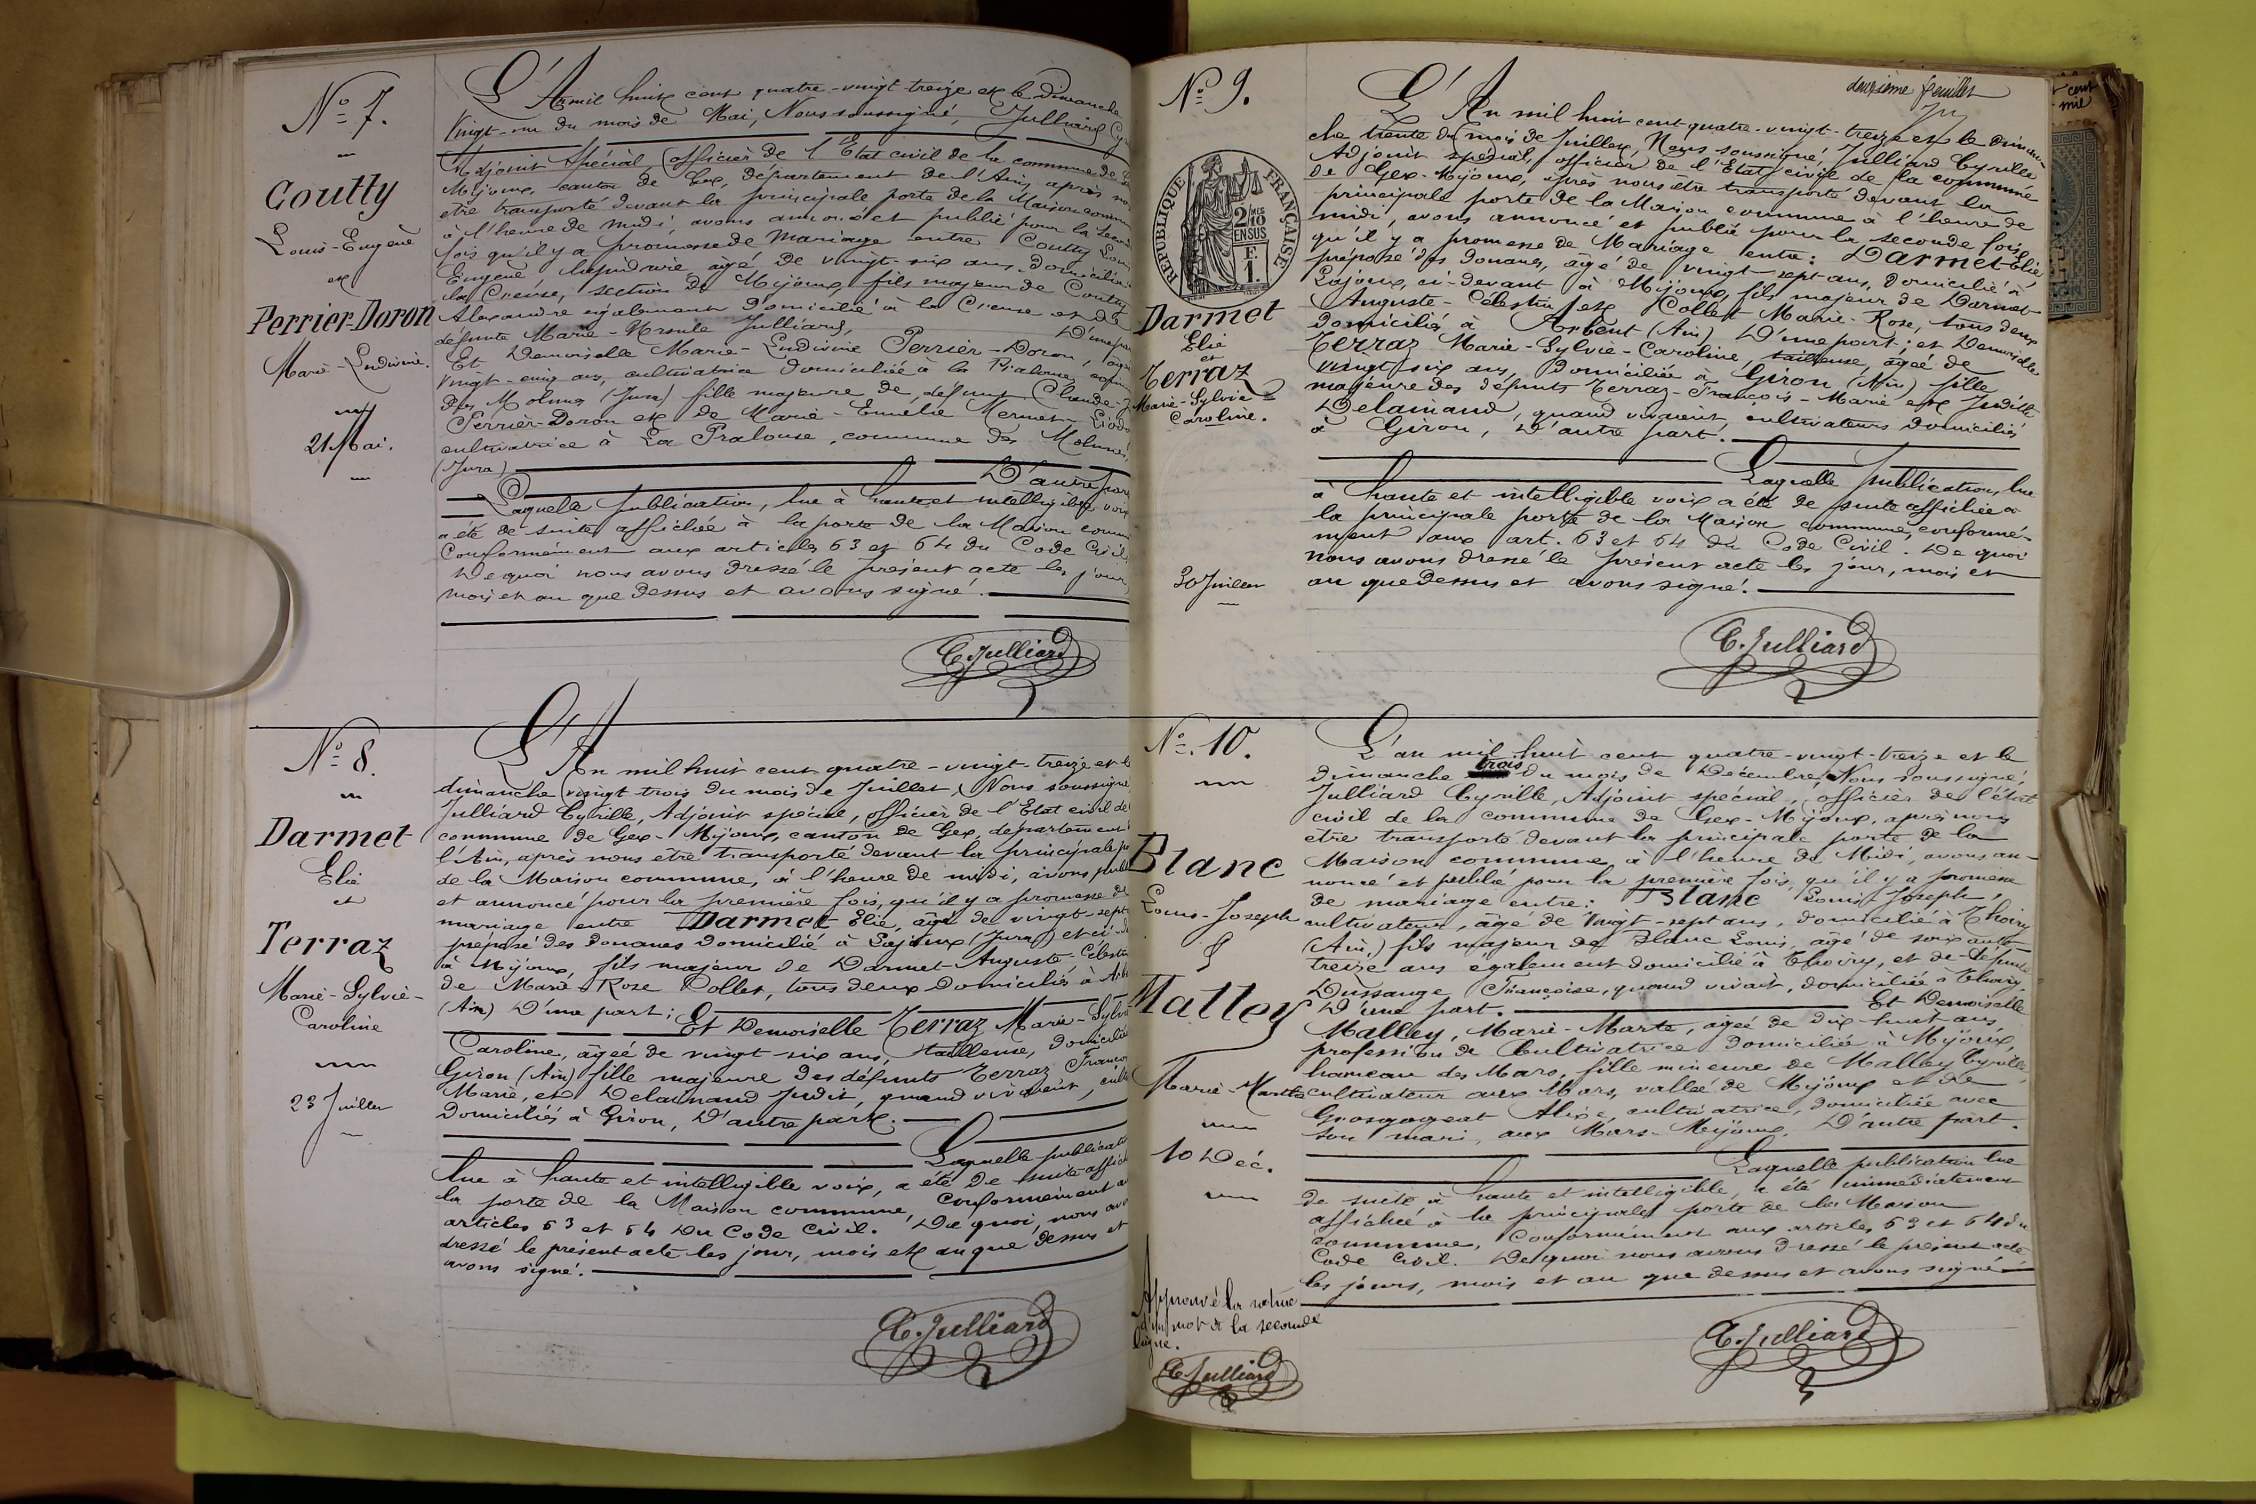 N° 7.
Goutty
Louis-Eugène
et
Perrier-Doron
Marie-Ludivine.
21 Mai.
L'An mil huit cent quatre-vingt-treize et le Dimanche
Vingt-un du mois de Mai, Nous soussigné, Julliard
Adjoint Spécial, officier de l'Etat civil de la commune de
Mijoux, canton de Gex, département de l'Ain, après
être transporté devant la principale porte de la Maison
à l'heure de midi, avons annoncé et publié pour la
fois qu'il y a promesse de Mariage entre Goutty
Eugène lapidaire âgé de vingt-six ans, domicilié
la Creuse, section de Mijoux fils majeur de Goutty
Alexandre également domicilié à la Creuse et de
défunte Marie-Ursule Julliard, D'une
Et Demoiselle Marie-Ludivine Perrier-Doron,
vingt-cinq ans, cultivatrice domiciliée à la Pralouse,
Des Molunes (Jura) fille majeure de défunt Claude-
Perrier-Doron et de Marie-Emélie Mermet-
cultivatrice à La Pralouse, commune des Molunes,
(Jura) D'autre part
Laquelle publication, lue à haute et intelligible voix
a été de suite affichée à la porte de la Maison
Conformément aux articles 63 et 64 du Code Civil
De quoi nous avons dressé le présent acte les jour,
mois et an que dessus et avons signé.
C. Julliard
N° 8.
Darmet
Elie
et
Terraz
Marie-Sylvie-
Caroline
23 Juillet
L'An mil huit cent quatre-vingt-treize et le
dimanche vingt-trois du mois de Juillet, Nous soussigné
Julliard Cyrille, Adjoint spécial, officier de l'Etat civil de
commune de Gex-Mijoux, canton de Gex, département
l'Ain, après nous être transporté devant la principale
de la Maison commune, à l'heure de midi, avons
et annoncé pour la première fois, qu'il y a promesse de
mariage entre Darmet Elie, âgé de vingt-sept
préposé des Douanes domicilié à Lajoux (Jura) et ci-
à Mijoux, fils majeur de Darmet Auguste-Célestin
de Marie-Rose Collet, tous deux domiciliés à
(Ain) D'une part;
Et Demoiselle Terraz Marie-Sylvie
Caroline, âgée de vingt six ans, tailleuse, domiciliée
Giron (Ain) fille majeure des défunts Terraz
Marie, et Delainand Judit, quand vivaient,
domiciliés à Giron, D'autre part.
Laquelle publication
lue à haute et intelligible voix, a été de suite
la porte de la Maison commune, conformément
articles 63 et 64 du Code Civil. De quoi, nous
dressé le présent acte les jour, mois et an que dessus et
avons signé.
C. Julliard
N° 9.
deuxième feuillet
RÉPUBLIQUE FRANÇAISE
2/10
MES
EN SUS
F.
1.
Darmet
Elie
et
Terraz
Marie-Sylvie
Caroline.
30 Juillet
L'An mil huit cent quatre-vingt-treize et le Diman-
che trente du mois de Juillet, Nous soussigné, Julliard Cyrille
Adjoint spécial, officier de l'Etat civil de la commune
de Gex-Mijoux, après nous être transporté devant la
principale porte de la Maison commune à l'heure de
midi, avons annoncé et publié pour la seconde fois
qu'il y a promesse de Mariage entre: Darmet Elie
préposé des Douanes, âgé de vingt-sept ans, domicilié à
Lajoux, ci-devant à Mijoux, fils majeur de Darmet
Auguste-Célestin et Collet Marie-Rose, tous deux
domiciliés à Arbent (Ain) D'une part; et Demoiselle
Terraz Marie-Sylvie-Caroline, tailleuse, âgée de
vingt-six ans, domiciliée à Giron (Ain) fille
majeure des défunts Terraz-François-Marie et Judith
Delainand, quand vivaient, cultivateurs domiciliés
à Giron, D'autre part.
Laquelle publication, lue
à haute et intelligible voix a été de suite affichée à
la principale porte de la Maison commune, conformé-
ment aux art. 63 et 64 du Code Civil. De quoi
nous avons dressé le présent acte les jour, mois et
an que dessus et avons signé.
C. Julliard
N° 10.
Blanc
Louis-Joseph
&
Malley
Marie-Marthe
10 Déc.
L'an mil huit cent quatre-vingt-treize et le
dimanche trois du mois de Décembre, Nous soussigné,
Julliard Cyrille, Adjoint spécial, officier de l'état
civil de la commune de Gex-Mijoux, après nous
être transporté devant la principale porte de la
Maison commune, à l'heure de Midi, avons an-
noncé et publié pour la première fois, qu'il y a promesse
de mariage entre: Blanc Louis Joseph,
cultivateur, âgé de vingt-sept ans, domicilié à Thoiry
(Ain) fils majeur de Blanc Louis, âgé de soixante-
treize ans également domicilié à Thoiry, et de défunte
Dussauge Françoise, quand vivait, domiciliée à Thoiry,
D'une part. Et Demoiselle
Malley, Marie-Marte, âgée de dix-huit ans,
profession de Cultivatrice domiciliée à Mijoux,
hameau des Mars, fille mineure de Malley Cyrille,
cultivateur aux Mars, vallée de Mijoux et de
Grosgogeat Alixe, cultivatrice, domiciliée avec
son mari, aux Mars-Mijoux, D'autre part.
Laquelle publication lue
de suite à haute et intelligible, a été immédiatement
affichée à la principale porte de la Maison
commune, Conformément aux articles 63 et 64 du
Code Civil. De quoi nous avons dressé le présent acte
les jours, mois et an que dessus et avons signé
C. Julliard
Approuvé la rature
d'un mot à la seconde
ligne.
C. Julliard